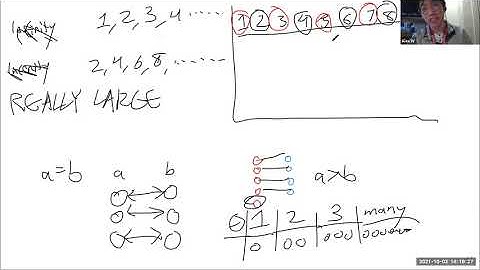 Infinity 1, 2, 3, 4 ......
Infinity 2, 4, 6, 8, ......
REALLY LARGE
1 2 3 4 5 6 7 8
a=b a b
a>b
0 1 2 3 many
2021-10-03 14:19:27